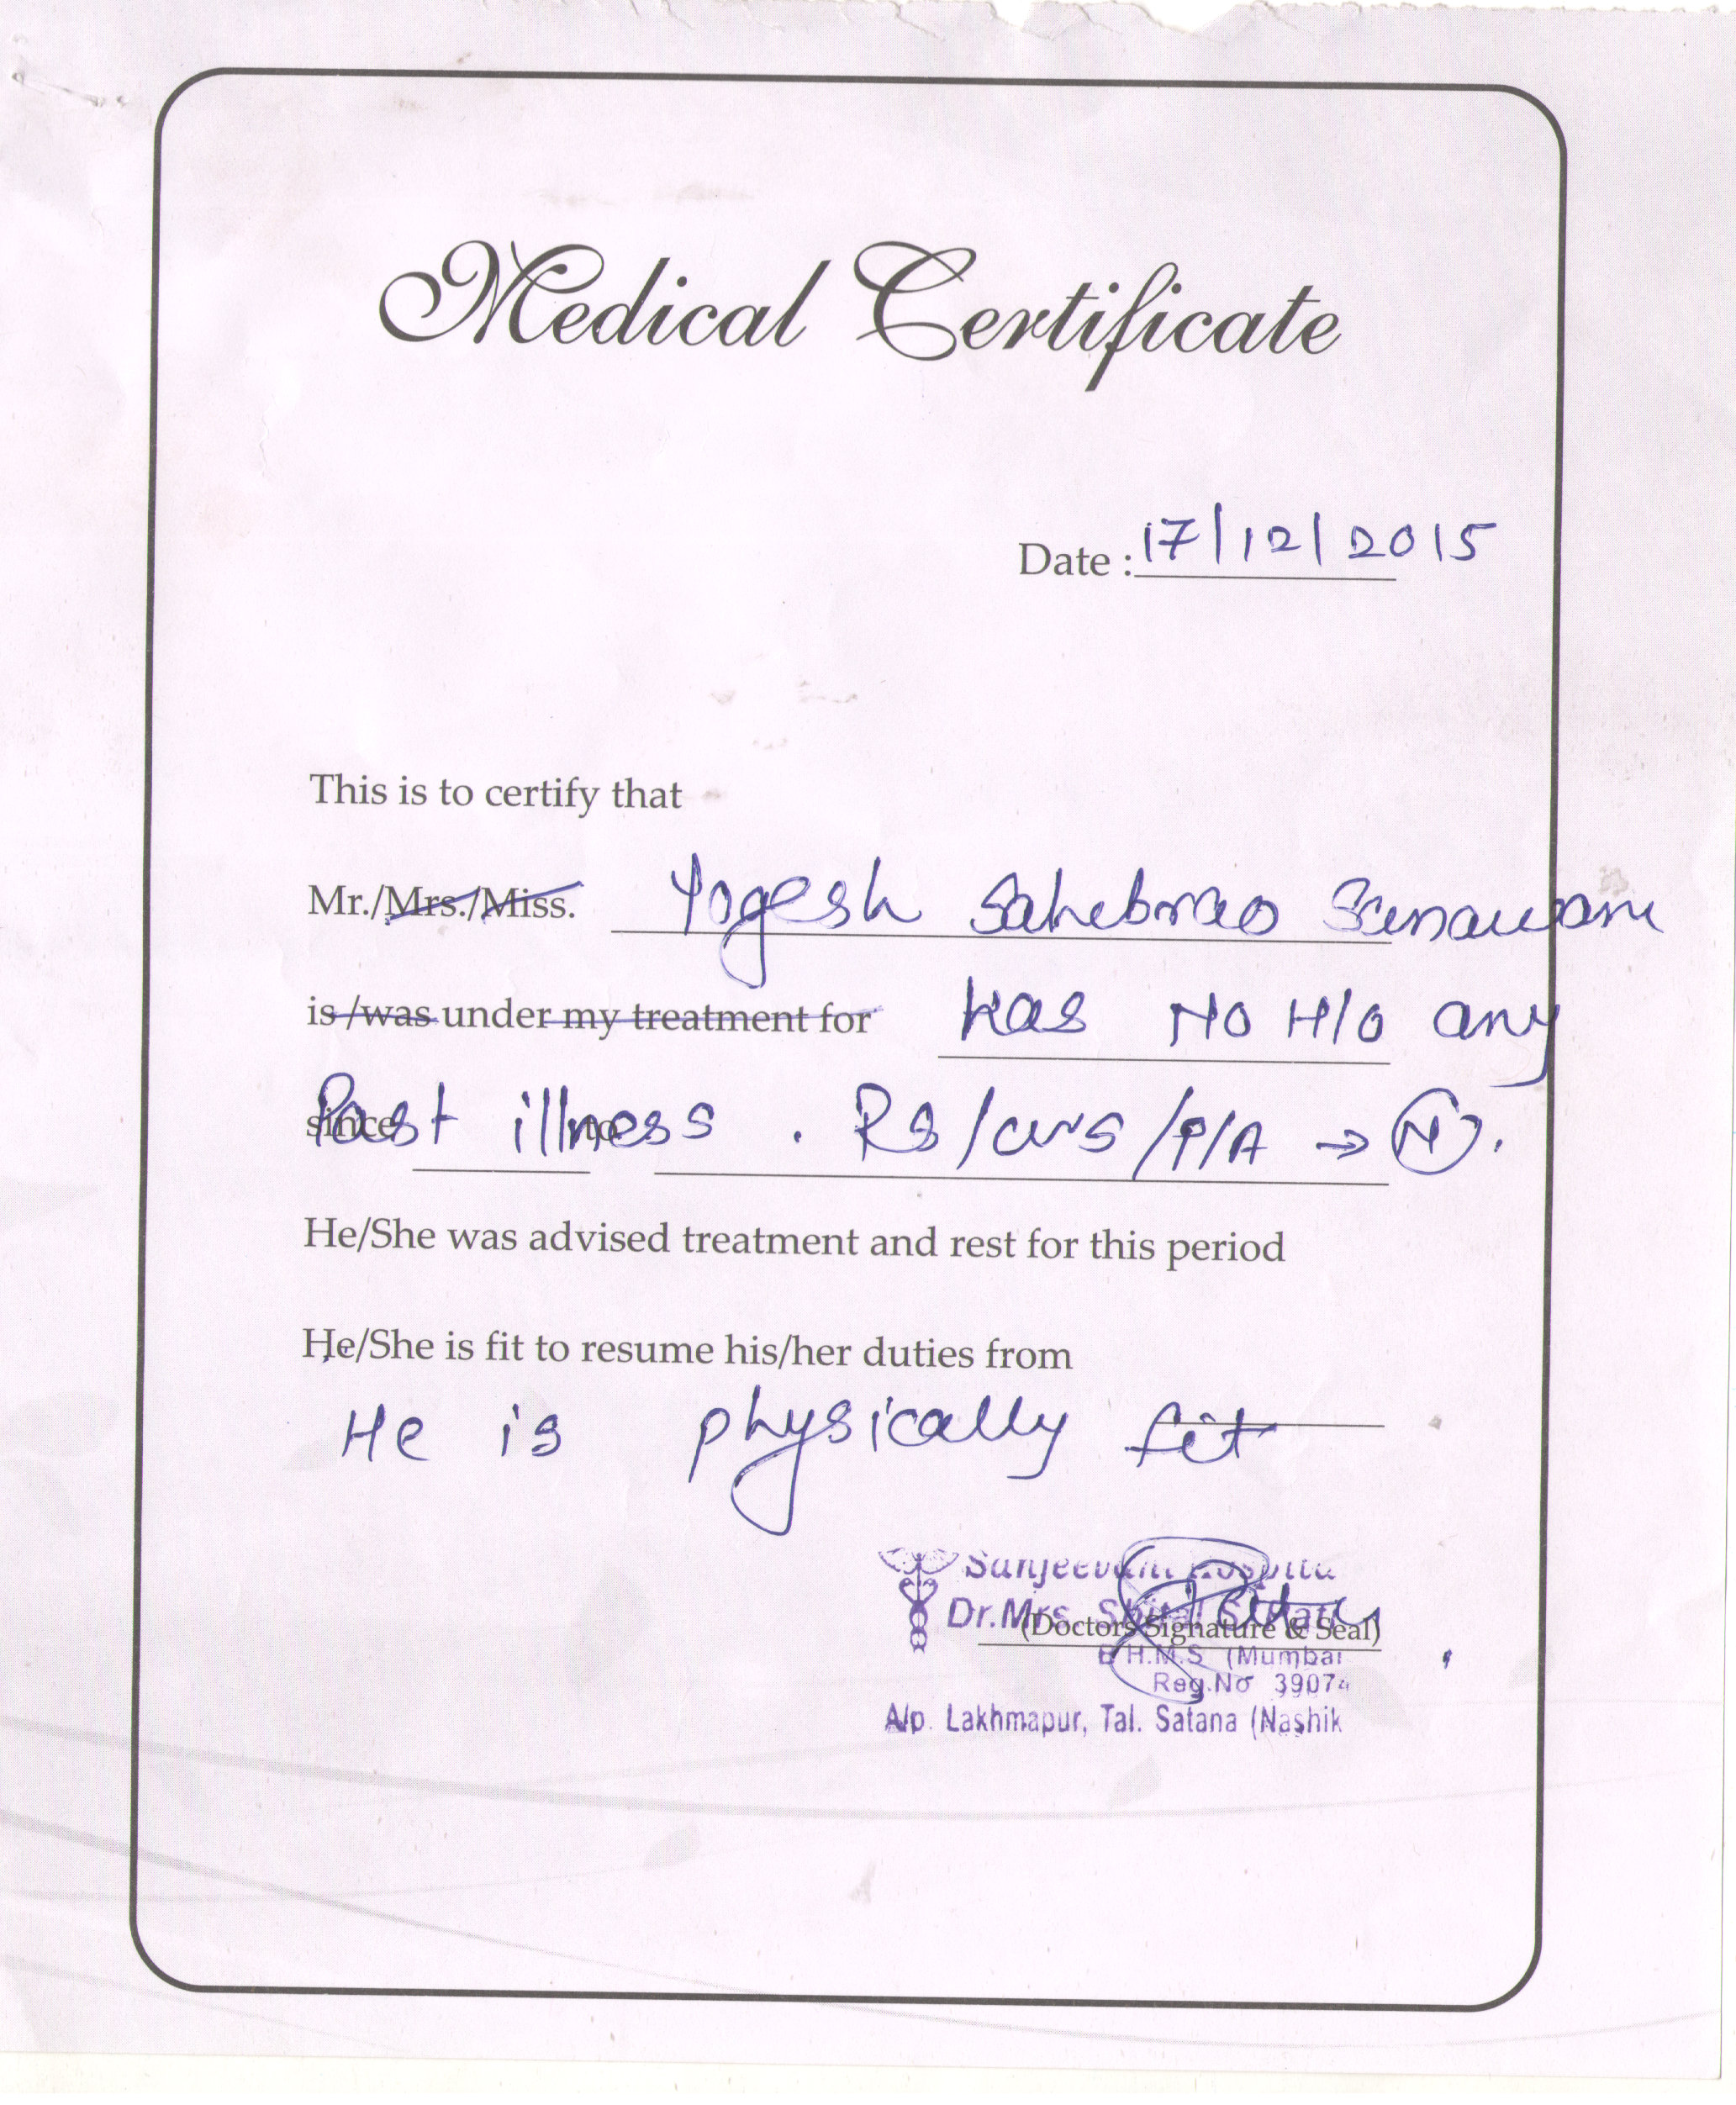 Medical Certificate
Date : 17/12/2015
This is to certify that
Mr./Mrs./Miss. Yogesh Sahebrao
is /was under my treatment for Has No H/o any
since to Past illness . Rs/cvs/P/A → N .
He/She was advised treatment and rest for this period
He/She is fit to resume his/her duties from
He is physically fit
Dr.Mrs.
(Doctors Signature & Seal)
H.M.S (Mumbai
Reg.No 3907
A/p. Lakhmapur, Tal. Satana (Nashik